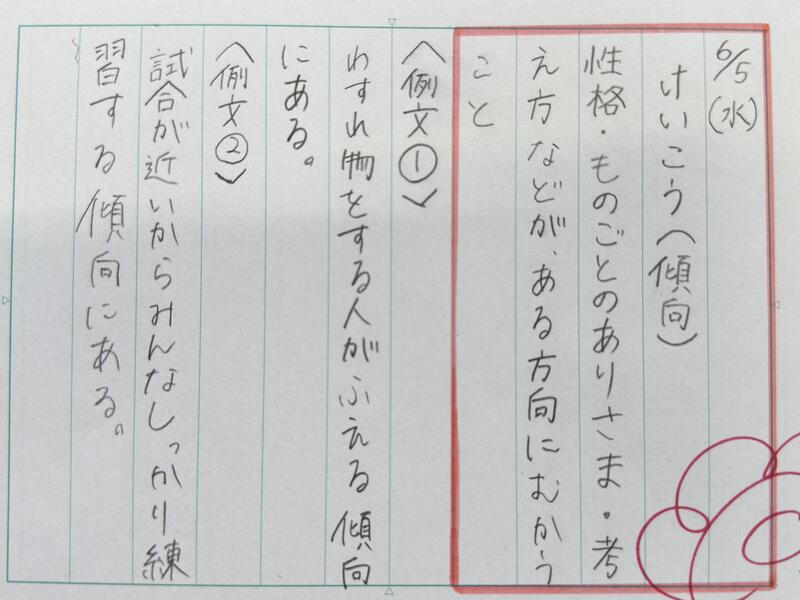 6/5(水)
けいこう(傾向)
性格・ものごとのありさま・考
え方などが、ある方向にむかう
こと
〈例文①〉
わすれ物をする人がふえる傾向
にある。
〈例文②〉
試合が近いからみんなしっかり練
習する傾向にある。